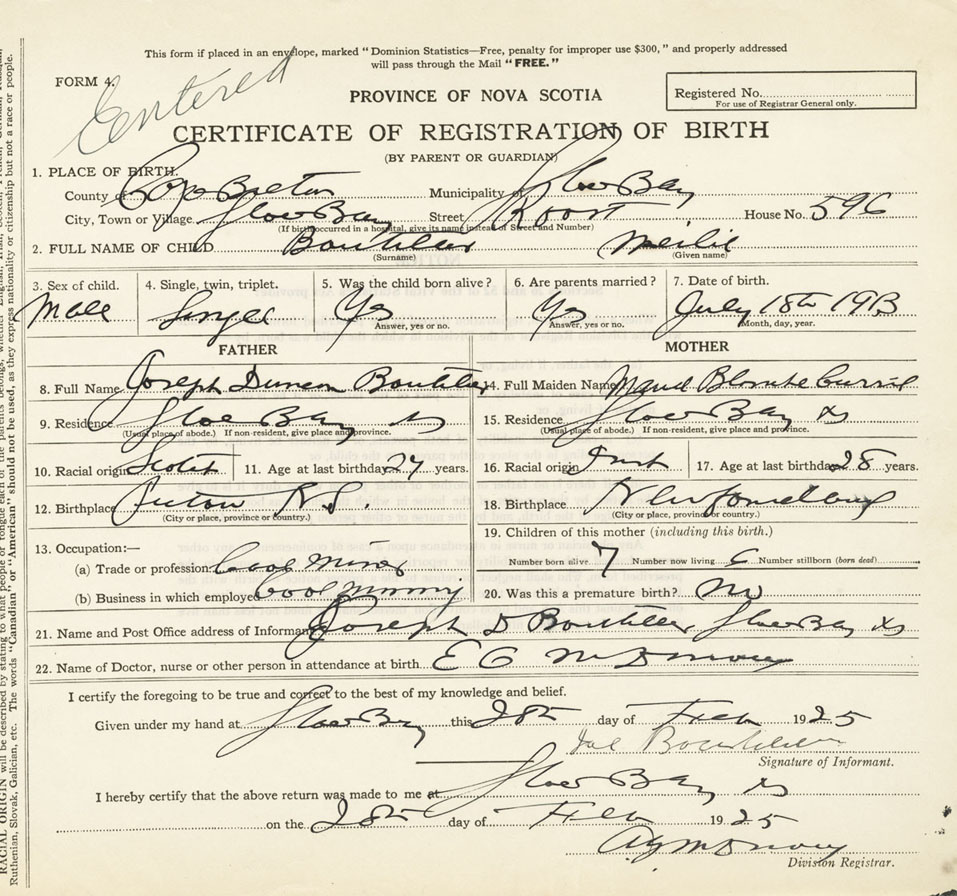 This form if placed in an envelope, marked "Dominion Statistics—Free, penalty for improper use $300," and properly addressed
will pass through the Mail "FREE."
FORM 4.
Entered
PROVINCE OF NOVA SCOTIA
Registered No.
For use of Registrar General only.
CERTIFICATE OF REGISTRATION OF BIRTH
(BY PARENT OR GUARDIAN)
1. PLACE OF BIRTH.
County of Cape Breton Municipality of Glace Bay
City, Town or Village Glace Bay Street House No. 596
(If birth occurred in a hospital, give its name instead of Street and Number)
2. FULL NAME OF CHILD Boutilier
(Surname) (Given name)
3. Sex of child. 4. Single, twin, triplet. 5. Was the child born alive? 6. Are parents married? 7. Date of birth.
Male Single Yes Yes July 18th 1913
Answer, yes or no. Answer, yes or no. Month, day, year.
FATHER MOTHER
8. Full Name Joseph Duncan Boutilier 14. Full Maiden Name Maud Blanche Currie
9. Residence Glace Bay NS 15. Residence Glace Bay NS
(Usual place of abode.) If non-resident, give place and province. (Usual place of abode.) If non-resident, give place and province.
10. Racial origin Scotch 11. Age at last birthday 27 years. 16. Racial origin 17. Age at last birthday 28 years.
12. Birthplace Pictou N.S. 18. Birthplace Newfoundland
(City or place, province or country.) (City or place, province or country.)
19. Children of this mother (including this birth.)
13. Occupation:—
(a) Trade or profession Coal Miner Number born alive 7 Number now living 6 Number stillborn (born dead)
(b) Business in which employed Coal Mining 20. Was this a premature birth? No
21. Name and Post Office address of Informant Joseph D Boutilier Glace Bay NS
22. Name of Doctor, nurse or other person in attendance at birth
I certify the foregoing to be true and correct to the best of my knowledge and belief.
Given under my hand at Glace Bay this 28th day of Feb 1925
Boutilier
Signature of Informant.
I hereby certify that the above return was made to me at Glace Bay NS
on the 28th day of Feb 1925
Division Registrar.
RACIAL ORIGIN will be described by stating to what people or tongue each of the parents belongs, whether English, Irish,
Ruthenian, Slovak, Galician, etc. The words "Canadian" or "American" should not be used, as they express nationality or citizenship but not a race or people.